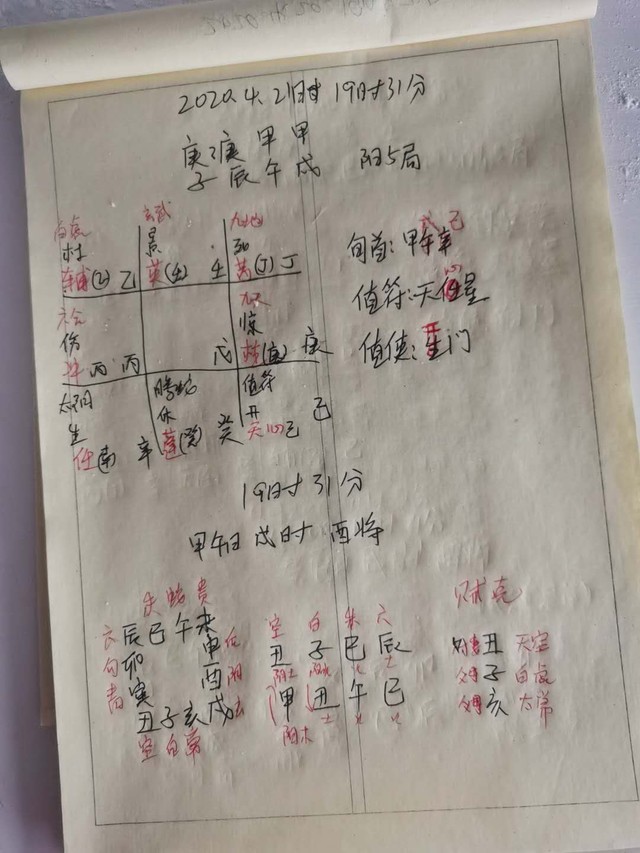 2020.4.21日时 19时31分
庚 庚 甲 甲
子 辰 午 戌 阳5局
白虎 玄武 九地
杜 景
辅(乙) 乙 英(壬) 壬 芮(丁) 丁
旬首:甲午辛 戌 己
值符:天任星 心
值使:生门 开
六合 九天
伤 惊
冲 丙 丙 戊 柱(庚) 庚
太阴 腾蛇 值符
生 休 开
任 辛 蓬(癸) 癸 天心己 己
19时31分
甲午日 戌时 酉将
朱 蛇 贵 空 白 朱 六 财 克
六 辰 巳 午 未 丑 子 巳 辰 丑 天空
勾 卯 申 后 阳土 土 父母 子 白虎
青 寅 酉 阴 甲 丑 午 巳 父母 亥 太常
丑 子 亥 戌 玄 阳木 土 火 火
空 白 常